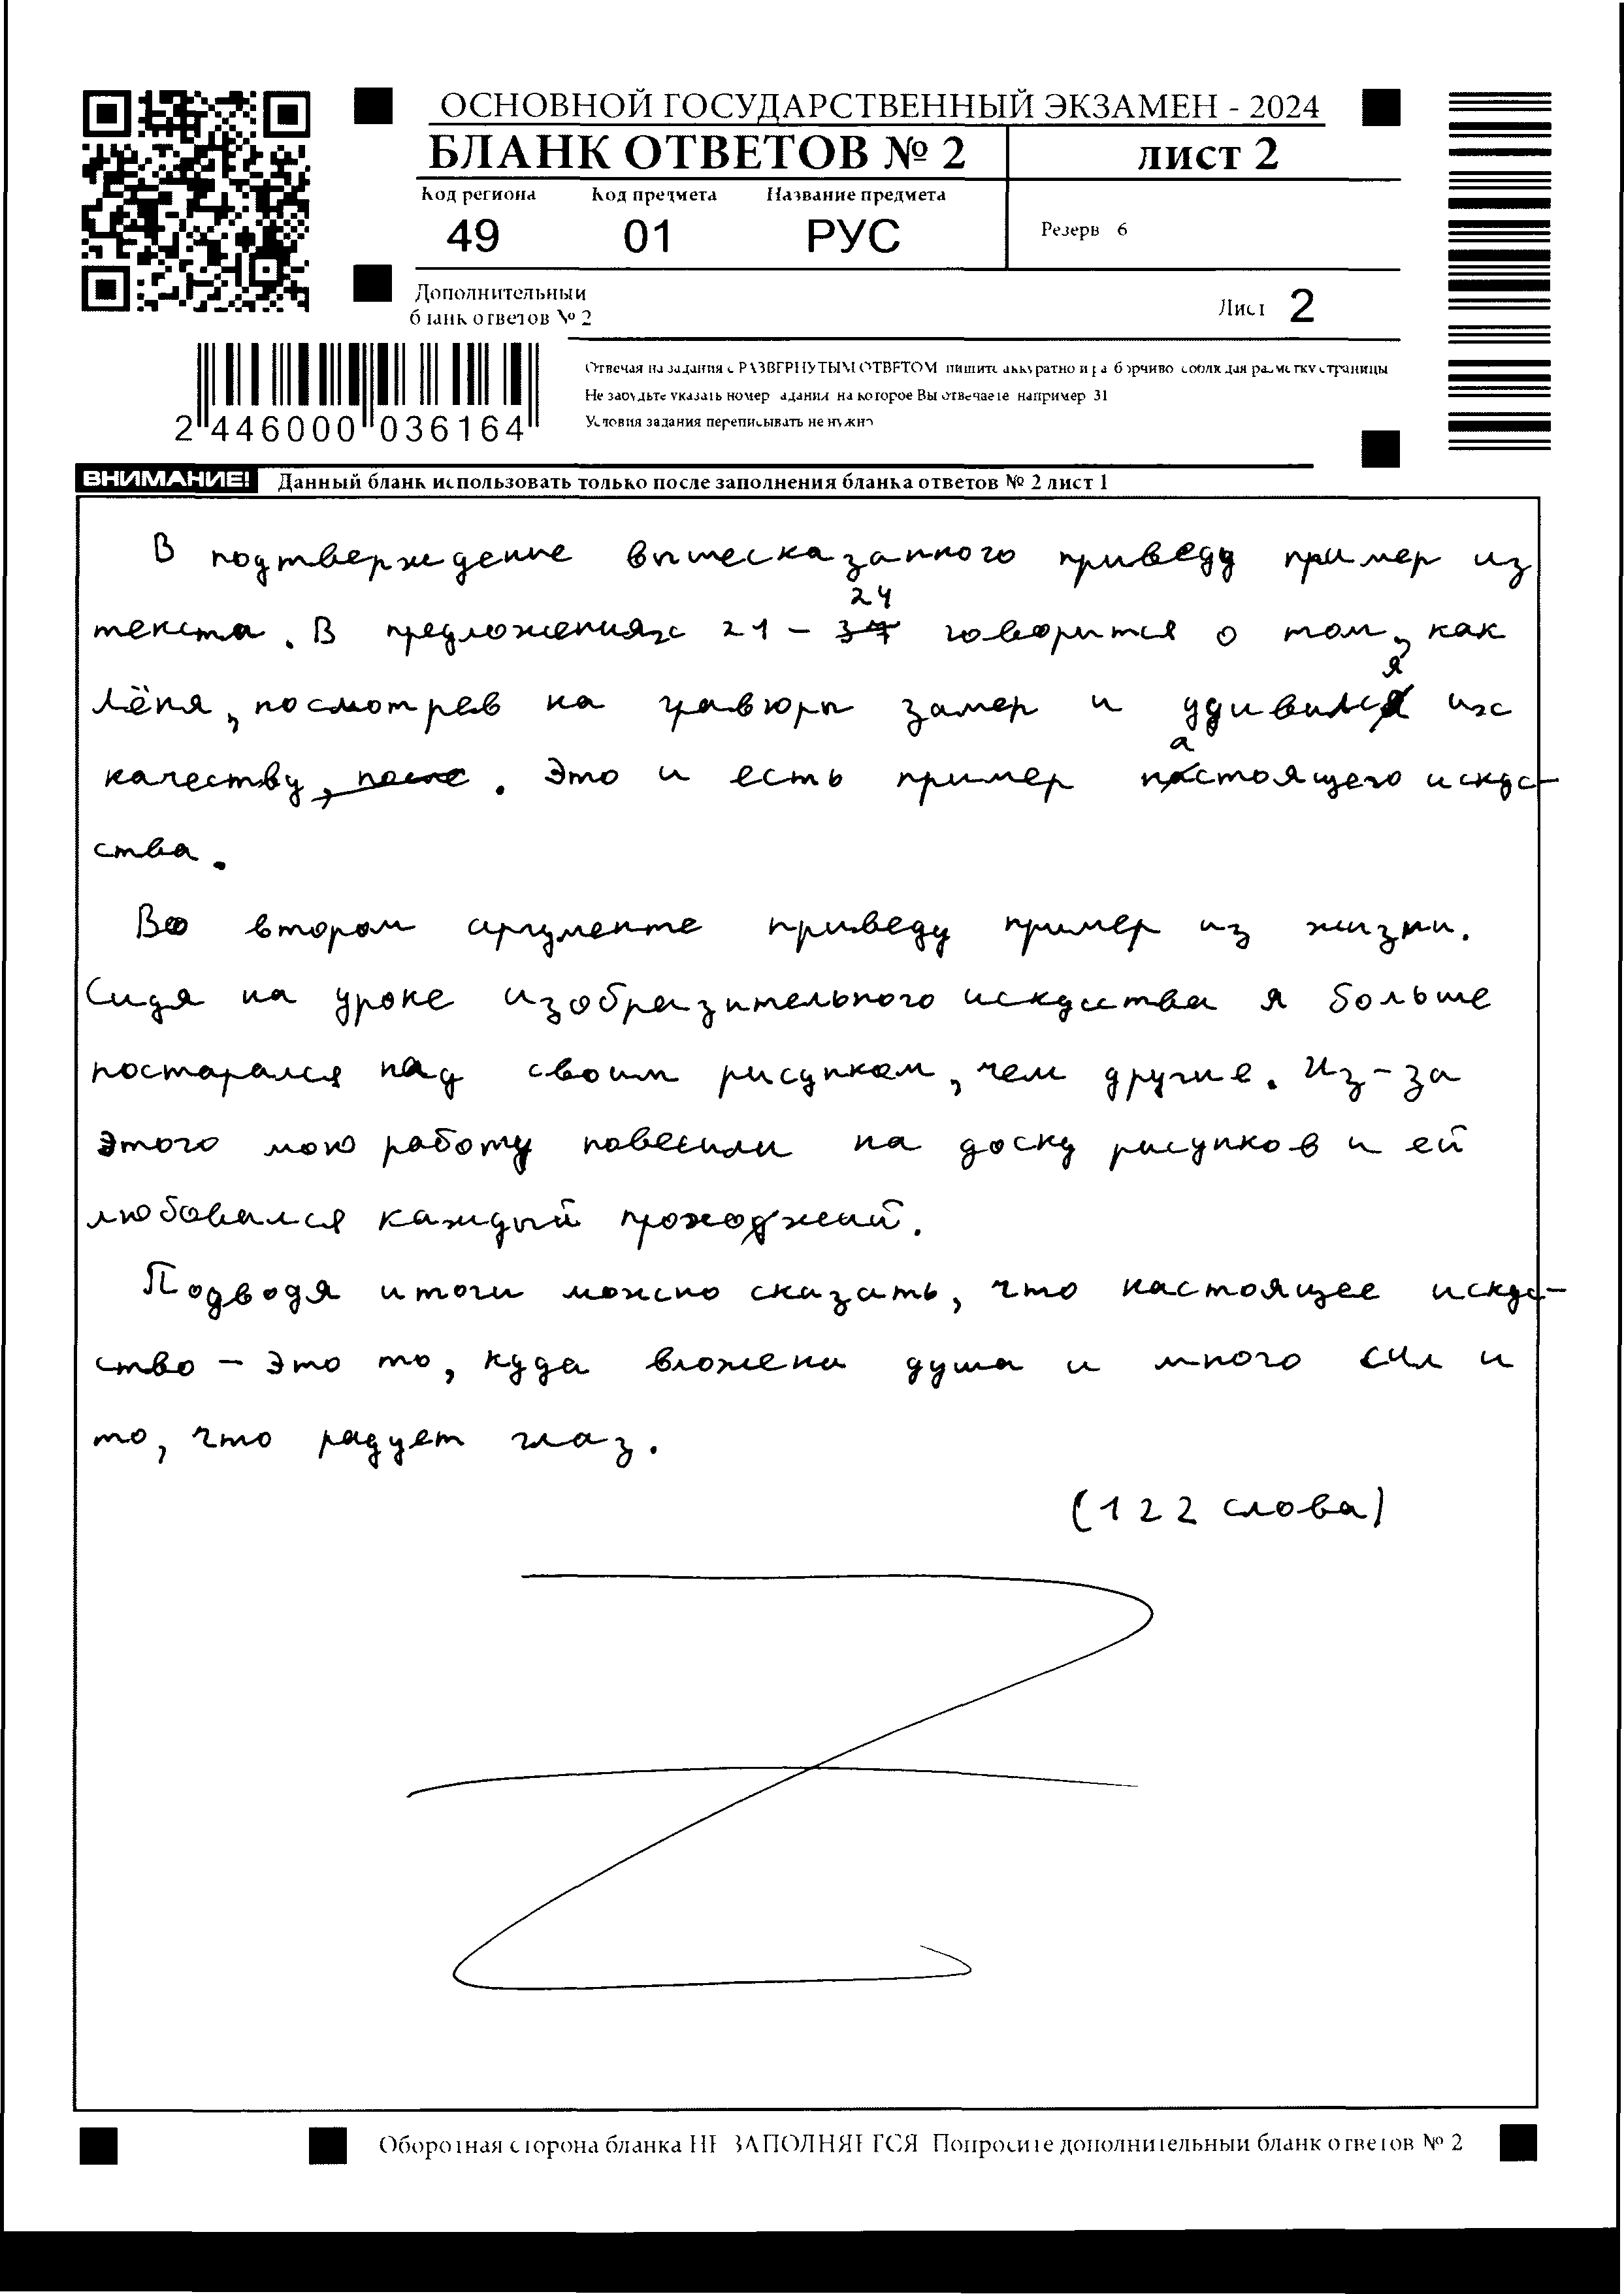 ОСНОВНОЙ ГОСУДАРСТВЕННЫЙ ЭКЗАМЕН - 2024
БЛАНК ОТВЕТОВ № 2 лист 2
Код региона Код предмета Название предмета
49 01 РУС
Резерв 6
Дополнительный
бланк ответов № 2
Лист 2
Отвечая на задания с РАЗВЕРНУТЫМ ОТВЕТОМ пишите аккуратно и разборчиво соблюдая разметку страницы
Не забудьте указать номер задания на которое Вы отвечаете например 31
Условия задания переписывать не нужно
2 446000 036164
ВНИМАНИЕ! Данный бланк использовать только после заполнения бланка ответов № 2 лист 1
В подтверждение вышесказанного приведу пример из
текста. В предложениях 21 - 24 говорится о том, как
Лёня, посмотрев на гравюры замер и удивился их
качеству. Это и есть пример настоящего искус-
ства.
Во втором аргументе приведу пример из жизни.
Сидя на уроке изобразительного искусства я больше
постарался над своим рисунком, чем другие. Из-за
этого мою работу повесили на доску рисунков и ей
любовался каждый прохожий.
Подводя итоги можно сказать, что настоящее искус-
ство - это то, куда вложена душа и много сил и
то, что радует глаз.
(122 слова)
Оборотная сторона бланка НЕ ЗАПОЛНЯЕТСЯ Попросите дополнительный бланк ответов № 2